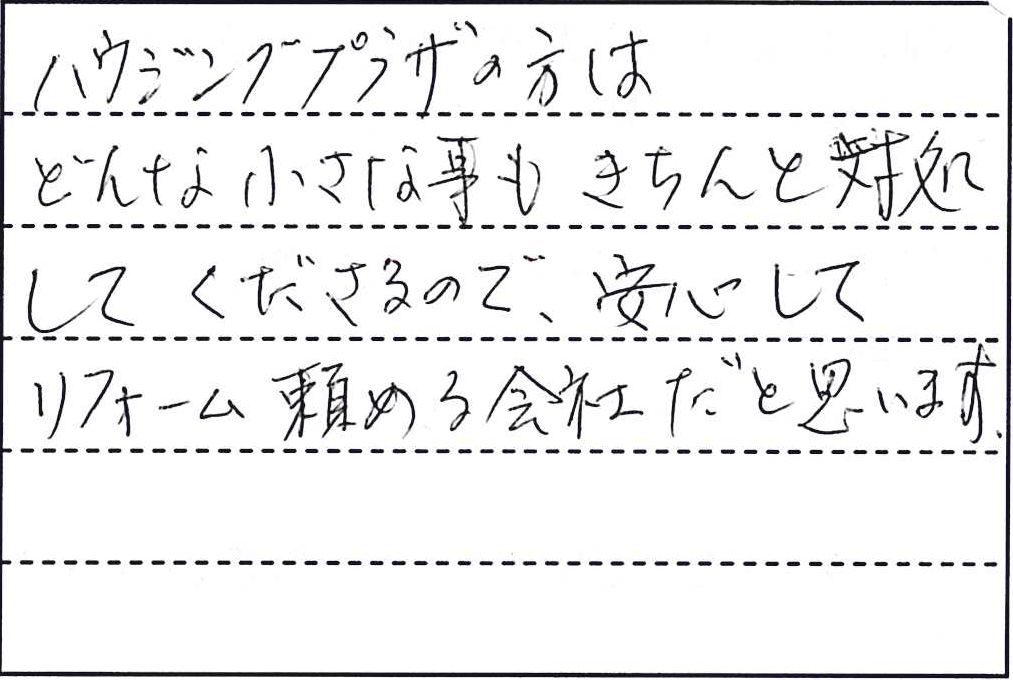 ハウジングプラザの方は
どんな小さな事もきちんと対処
してくださるので、安心して
リフォーム頼める会社だと思います.